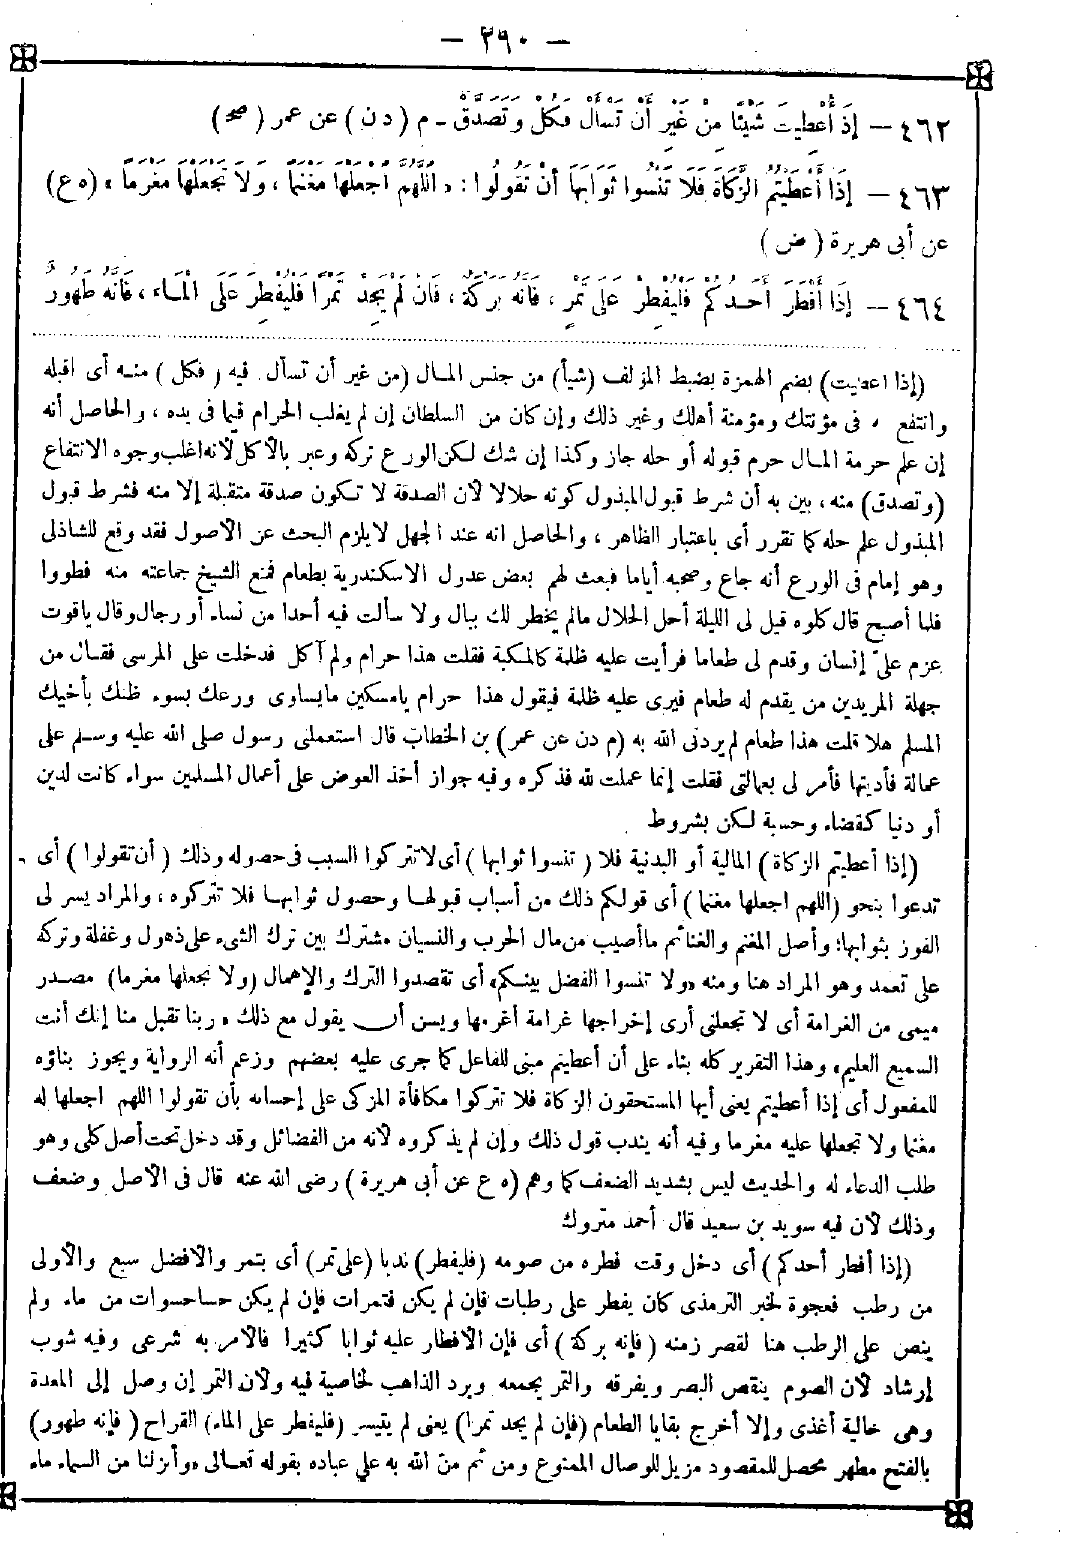 — ٢٩٠ —
٤٦٢ — إِذَا أُعْطِيتَ شَيْئًا مِنْ غَيْرِ أَنْ تَسْأَلَ فَكُلْ وَتَصَدَّقْ - م (د ن) عن عمر (صح)
٤٦٣ — إِذَا أَعْطَيْتُمُ الزَّكَاةَ فَلَا تَنْسُوا ثَوَابَهَا أَنْ تَقُولُوا: «اللَّهُمَّ اجْعَلْهَا مَغْنَمًا، وَلَا تَجْعَلْهَا مَغْرَمًا» (ه ع)
عن أبى هريرة (ض)
٤٦٤ — إِذَا أَفْطَرَ أَحَدُكُمْ فَلْيُفْطِرْ عَلَى تَمْرٍ، فَانَّهُ بَرَكَةٌ، فَانْ لَمْ يَجِدْ تَمْرًا فَلْيُفْطِرْ عَلَى الْمَاءِ، فَانَّهُ طَهُورٌ
(إذا اعطيت) بضم الهمزة بضبط المؤلف (شيأ) من جنس المال (من غير أن تسأل فيه (فكل) منه أى اقبله
وانتفع به فى مؤنتك ومؤمنة أهلك وغير ذلك وإن كان من السلطان إن لم يغلب الحرام فيما فى يده، والحاصل أنه
إن علم حرمة المال حرم قبوله أو حله جاز وكذا إن شك لكن الورع تركه وعبر بالأكل لأنه اغلب وجوه الانتفاع
(وتصدق) منه، بين به أن شرط قبول المبذول كونه حلالا لأن الصدقة لا تكون صدقة متقبلة إلا منه فشرط قبول
المبذول علم حله كما تقرر أى باعتبار الظاهر، والحاصل انه عند الجهل لا يلزم البحث عن الأصول فقد وقع للشاذلى
وهو إمام فى الورع أنه جاع وصحبه أياما فبعث لهم بعض عدول الاسكندرية بطعام فمنع الشيخ جماعته منه فطووا
فلما أصبح قال كلوه قيل لى الليلة أحل الحلال مالم يخطر لك ببال ولا سألت فيه أحدا من نساء أو رجال وقال ياقوت
عزم علىّ إنسان وقدم لى طعاما فرأيت عليه ظلمة كالمكبة فقلت هذا حرام ولم آكل فدخلت على المرسى فقال من
جهلة المريدين من يقدم له طعام فيرى عليه ظلمة فيقول هذا حرام يامسكين مايساوى ورعك بسوء ظنك بأخيك
المسلم هلا قلت هذا طعام لم يردنى الله به (م د ن عن عمر) بن الخطاب قال استعملنى رسول صلى الله عليه وسلم على
عمالة فأديتها فأمر لى بعمالتى فقلت إنما عملت لله فذكره وفيه جواز أخذ العوض على أعمال المسلمين سواء كانت لدين
أو دنيا كقضاء وحسبة لكن بشروط
(إذا أعطيتم الزكاة) المالية أو البدنية فلا (تنسوا ثوابها) أى لا تتركوا السبب فى حصوله وذلك (أن تقولوا) أى
تدعوا بنحو (اللهم اجعلها مغنما) أى قولكم ذلك من أسباب قبولها وحصول ثوابها فلا تتركوه، والمراد يسر لى
الفوز بثوابها؛ وأصل المغنم والغنائم ماأصيب من مال الحرب والنسيان مشترك بين ترك الشىء على ذهول وغفلة وتركه
على تعمد وهو المراد هنا ومنه «ولا تنسوا الفضل بينكم» أى تقصدوا الترك والإهمال (ولا تجعلها مغرما) مصدر
ميمى من الغرامة أى لا تجعلنى أرى إخراجها غرامة أغرمها ويسن أن يقول مع ذلك «ربنا تقبل منا إنك أنت
السميع العليم» وهذا التقرير كله بناء على أن أعطيتم مبنى للفاعل كما جرى عليه بعضهم وزعم أنه الرواية ويجوز بناؤه
للمفعول أى إذا أعطيتم يعنى أيها المستحقون الزكاة فلا تتركوا مكافأة المزكى على إحسانه بأن تقولوا اللهم اجعلها له
مغنما ولا تجعلها عليه مغرما وفيه أنه يندب قول ذلك وإن لم يذكروه لأنه من الفضائل وقد دخل تحت أصل كلى وهو
طلب الدعاء له والحديث ليس بشديد الضعف كما وهم (ه ع عن أبى هريرة) رضى الله عنه قال فى الأصل وضعف
وذلك لأن فيه سويد بن سعيد قال أحمد متروك
(إذا أفطر أحدكم) أى دخل وقت فطره من صومه (فليفطر) ندبا (على تمر) أى بتمر والأفضل سبع والأولى
من رطب فعجوة لخبر الترمذى كان يفطر على رطبات فإن لم يكن فتمرات فإن لم يكن حسا حسوات من ماء ولم
ينص على الرطب هنا لقصر زمنه (فإنه بركة) أى فإن الافطار عليه ثوابا كثيرا فالأمر به شرعى وفيه شوب
إرشاد لأن الصوم ينقص البصر ويفرقه والتمر يجمعه ويرد الذاهب لخاصية فيه ولأن التمر إن وصل إلى المعدة
وهى خالية أغذى وإلا أخرج بقايا الطعام (فإن لم يجد تمرا) يعنى لم يتيسر (فليفطر على الماء) القراح (فإنه طهور)
بالفتح مطهر محصل للمقصود مزيل للوصال الممنوع ومن ثم من الله به على عباده بقوله تعالى «وأنزلنا من السماء ماء